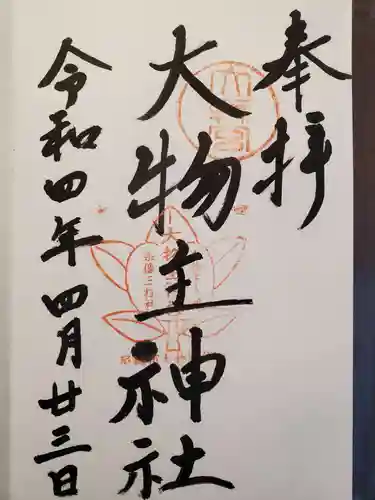 奉拝
大物主神社
令和四年四月廿三日